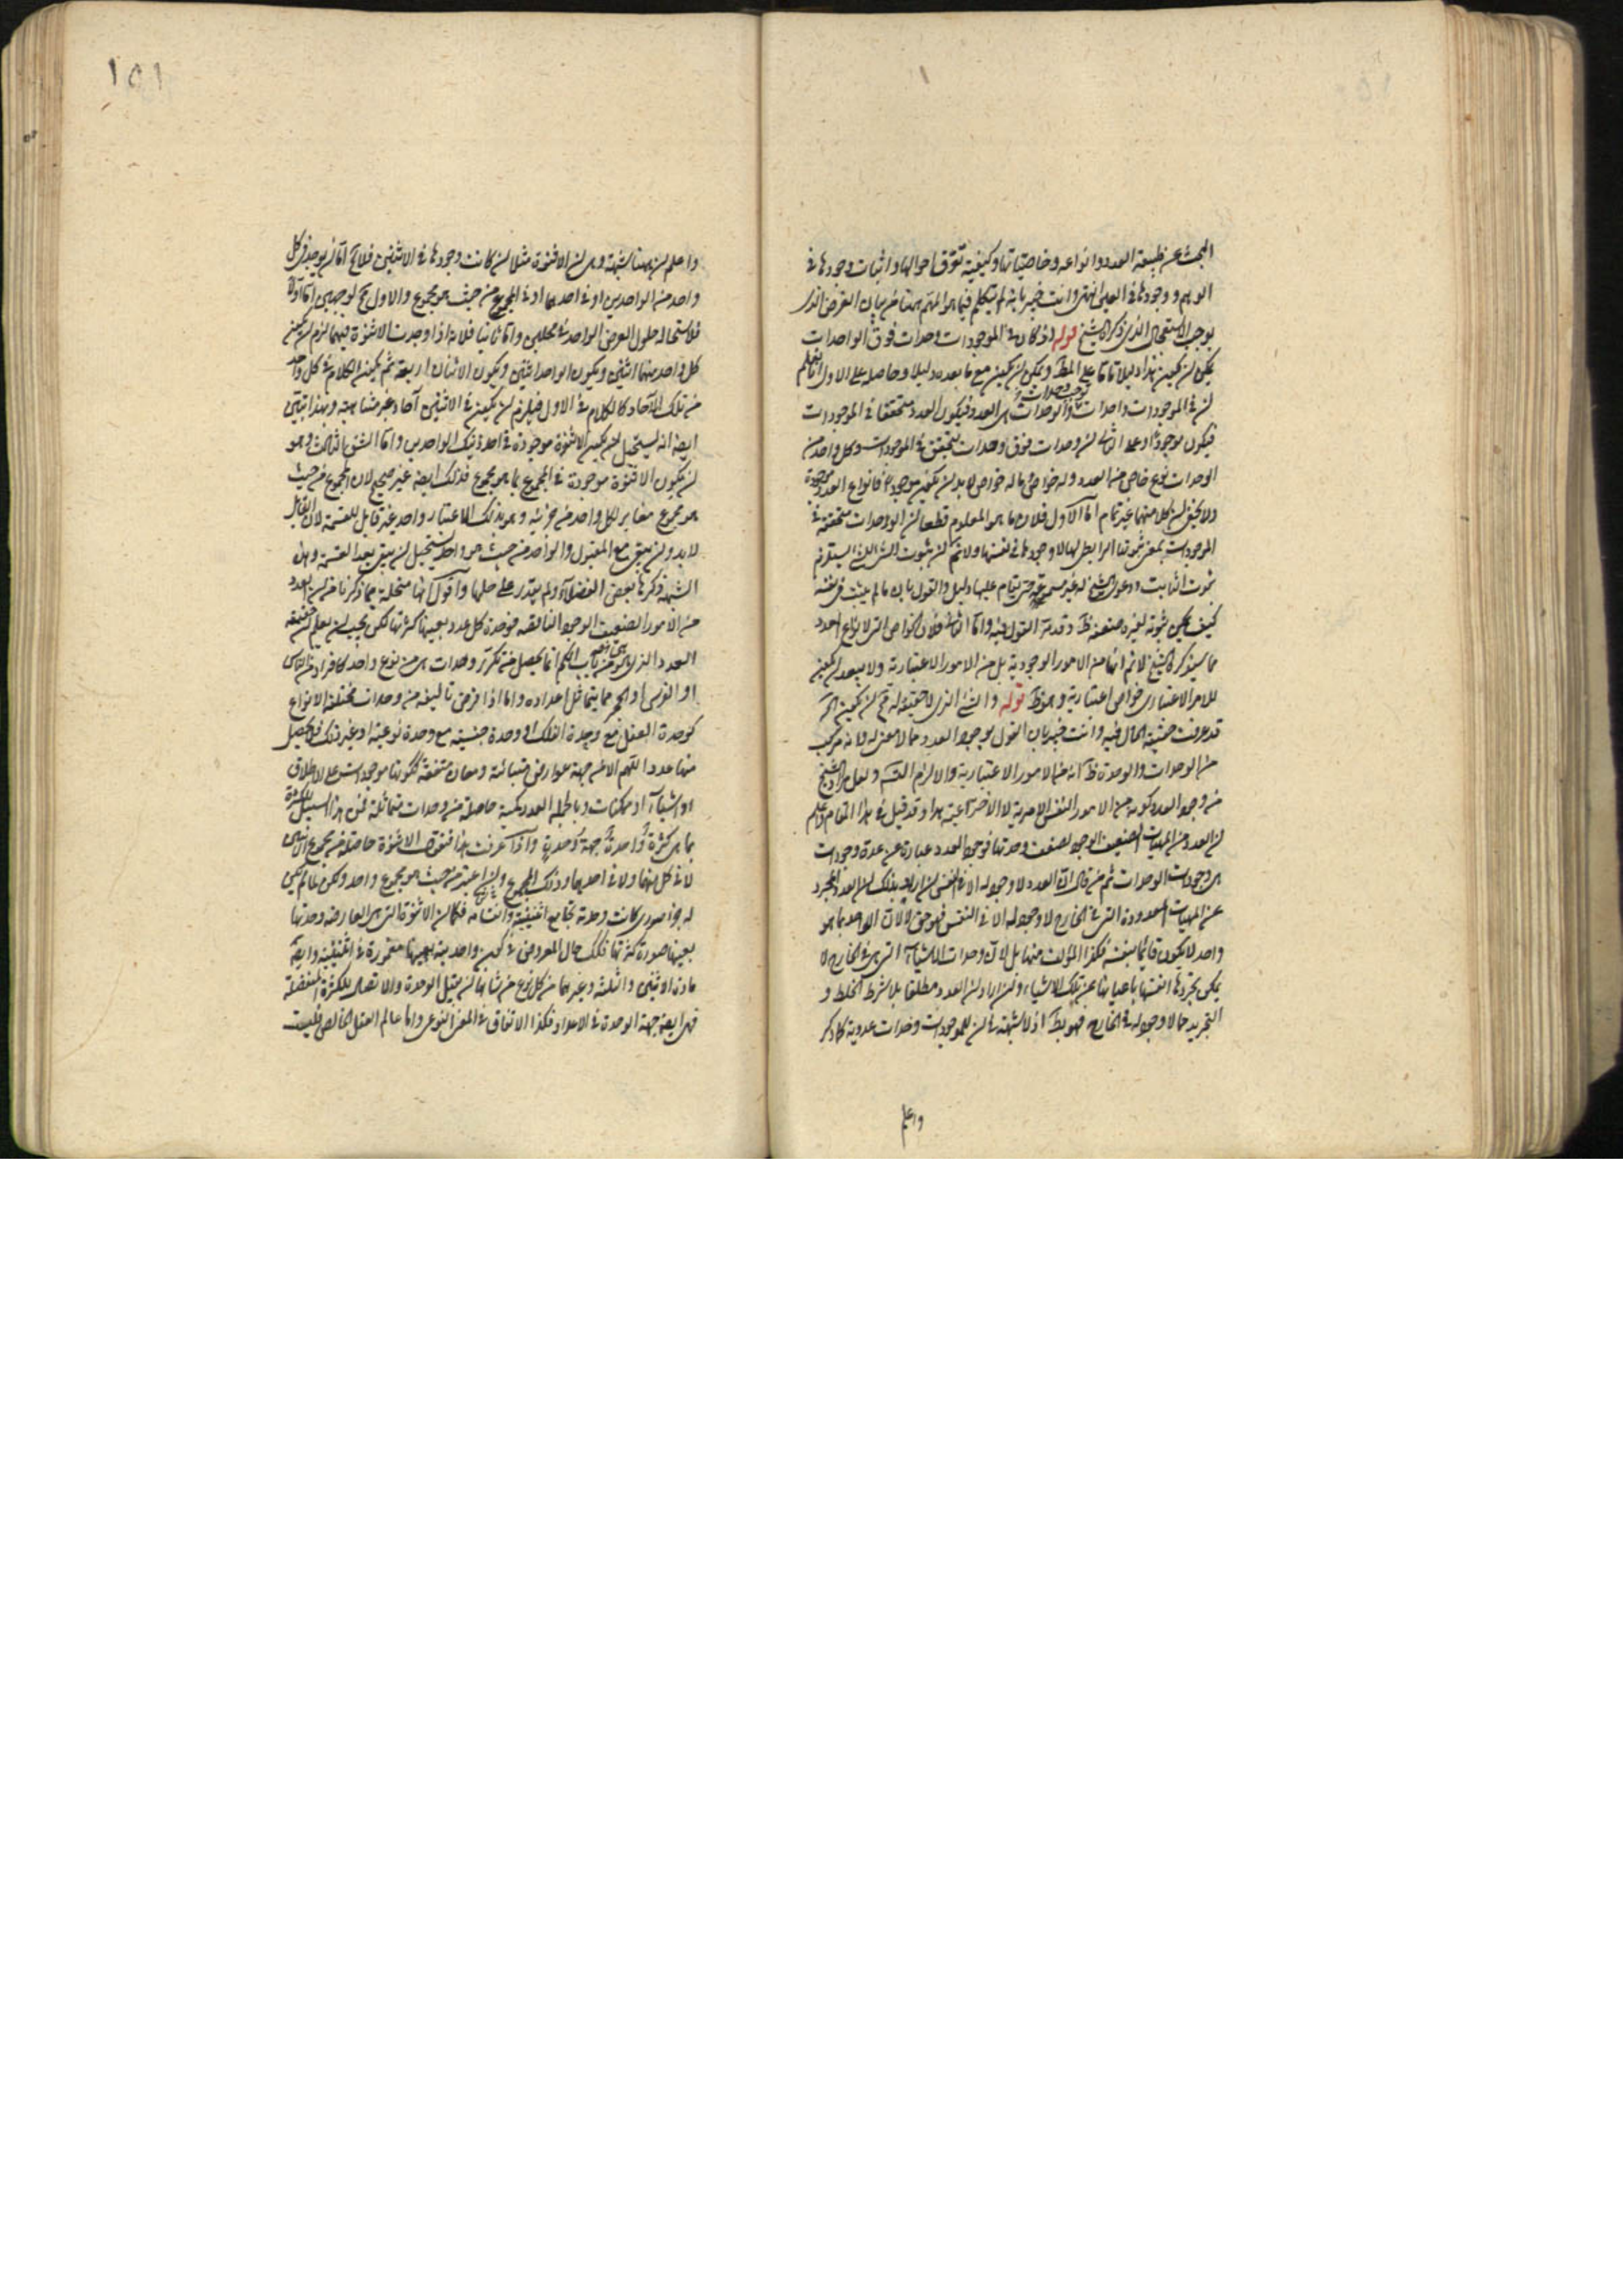 البحث عن طبيعة العدد وانواعه وخاصياتها وكيفية تعرف احوالها واثبات وجودها في
الوهم ووجودها في العين انتهى وانت خبير بانه لم يتكلم فيما هو المهم ههنا من بيان الغرض الذى
يوجب الاستعجال الذى ذكره الشيخ قوله اذ كان في الموجودات وحدات فوق الواحدات
يمكن ان يكون هذا دليلا تاما على المط ويمكن ان يكون مع ما بعده دليلا وحاصله على الاول انا نعلم
ان في الموجودات واحدات والوحدات هى العدد فيكون العدد متحققا في الموجودات
فيكون موجودا وعلى الثانى ان وحدات فوق وحدات يتحقق في الموجودات وكل واحد من
الوحدات نوع خاص من العدد وله خواص وما له خواص لا بد ان يكون موجودا فانواع العدد موجودة
ولا يخفى ان كلا منهما غير تمام اما الاول فلان ما هو المعلوم قطعا ان الوحدات متحققة في
الموجودات بمعنى ثبوتها الرابطى لها لا وجودها في نفسها ولا نم ان ثبوت الشئ للشئ يستلزم
ثبوت الثابت ودعوى الشيخ له غير مسموعة حتى يقام عليها دليل والقول بان ما لم يثبت في نفسه
كيف يمكن ثبوته لغيره ضعفه ظ وقد مر القول فيه واما الثانى فلان الخواص التى لانواع العدد
مما سيذكره الشيخ لا نم انها من الامور الوجودية بل من الامور الاعتبارية ولا يبعد ان يكون
للامر الاعتبارى خواص اعتبارية وهو ظ قوله والشئ الذى لا حقيقة له مح ان يكون اه
قد عرفت حقيقة الحال فيه وانت خبير بان القول بوجود العدد مما لا معنى له لانه مركب
من الوحدات والوحدة ظ انه من الامور الاعتبارية والا لزم التس ولعل مراد الشيخ
من وجود العدد كونه من الامور النفس الامرية لا الاختراعية هذا وقد قيل في هذا المقام واعلم
ان العدد من المهيات الضعيفة الوجود لضعف وحدتها فوجود العدد عبارة عن عدة وجودات
هى وجودات الوحدات ثم من قال ان العدد لا وجود له الا في النفس ان اراد بذلك ان العدد المجرد
عن المهيات المعدودة التى في الخارج لا وجود له الا في النفس فهو حق لا لان الواحد بما هو
واحد لا يكون قائما بنفسه فكذا المؤلف منها بل لان وحدات الاشياء التى هى في الخارج لا
يمكن تجردها انفسها باعيانها عن تلك الاشياء وان اراد ان العدد مطلقا بلا شرط الخلط و
التجريد مما لا وجود له في الخارج فهو بط اذ لا شبهة في ان للموجودات وحدات عددية كما ذكر
واعلم
١٥١
واعلم ان ههنا شبهة وهى ان الاثنوة مثلا ان كانت وجودها في الاثنين فلا يخ اما ان يوجد في كل
واحد من الواحدين او في احدهما او في المجموع من حيث هو مجموع والاول مح لوجهين اما اولا
فلاستحالة حلول العرض الواحد في محلين واما ثانيا فلانه اذا وجدت الاثنوة فيهما لزم ان يكون
كل واحد منهما اثنين ويكون الواحد اثنين ويكون الاثنان اربعة ثم يكون الكلام في كل واحد
من تلك الآحاد كالكلام في الاول فيلزم ان يكون في الاثنين آحاد غير متناهية وبهذا تبين
ايضا انه يستحيل ان يكون الاثنوة موجودة في احد ذينك الواحدين واما الشق الثالث وهو
ان يكون الاثنوة موجودة في المجموع بما هو مجموع فذلك ايضا غير صحيح لان المجموع من حيث
هو مجموع مغاير لكل واحد من جزئيه وهو بذلك الاعتبار واحد غير قابل للقسمة لان القابل
لا بد وان يبقى مع المقبول والواحد من حيث هو واحد يستحيل ان يبقى بعد القسمة وهذه
الشبهة ذكرها بعض الفضلاء ولم يقدر على حلها واقول انها منحلة بما ذكرنا من ان العدد
من الامور الضعيفة الوجود الناقصة فوحدة كل عدد بعينها كثرتها لكن يجب ان يعلم ان حقيقة
العدد الذى هو من باب الكم انما يحصل من تكرر وحدات هى من نوع واحد كافراد من الناس
او الفرس او الحجر مما يتماثل اعداده واما اذا فرض تاليفه من وحدات مختلفة الانواع
كوحدة العقل مع وحدة الفلك او وحدة جنسية مع وحدة نوعية او غير ذلك فلا يحصل
منها عدد اللهم الا من جهة عوارض متباينة ومعان متفقة ككونها موجودات على الاطلاق
او اشياء او ممكنات وبالجملة العدد كمية حاصلة من وحدات متماثلة فمن هذا السبيل للكثرة
بما هى كثرة واحدة جهة وحدية واذا عرفت هذا فنقول الاثنوة حاصلة من مجموع الاثنين
لا في كل منهما ولا في احدهما وذلك المجموع وان اعتبر من حيث هو مجموع واحد ولكن لما لم يكن
له جزء صورى كانت وحدته تجامع اثنينية وانقسامه فكما ان الاثنوة التى هى العارضة وحدتها
بعينها صورة كثرتها فكذلك حال المعروض في كون واحديته بعينها مغمورة في اثنينيته وايضا
مادة الاثنين والثلثة وغيرهما من كل نوع من شانها ان يقبل الوحدة والاتصال للكثرة المنفصلة
فهى ايضا جهة الوحدة في الاعداد فكذا الاتفاق في المعنى النوعى واما عالم العقل الخالص فليست